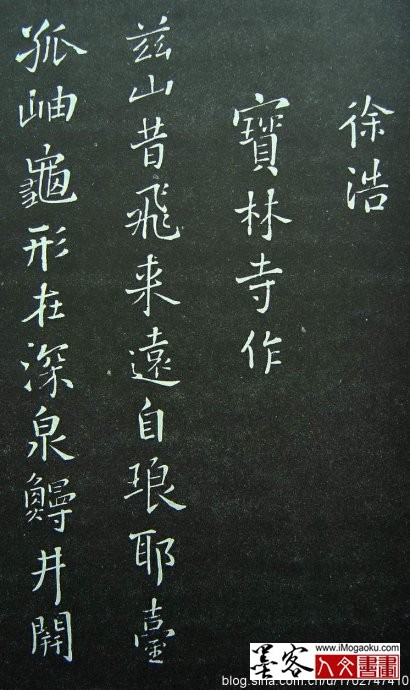 徐浩
寶林寺作
茲山昔飛来遠自琅耶臺
孤岫龜形在深泉鰻井開
墨客
www.iMogaoku.com
人文書畫
blog.sina.com.cn/u/1702747410